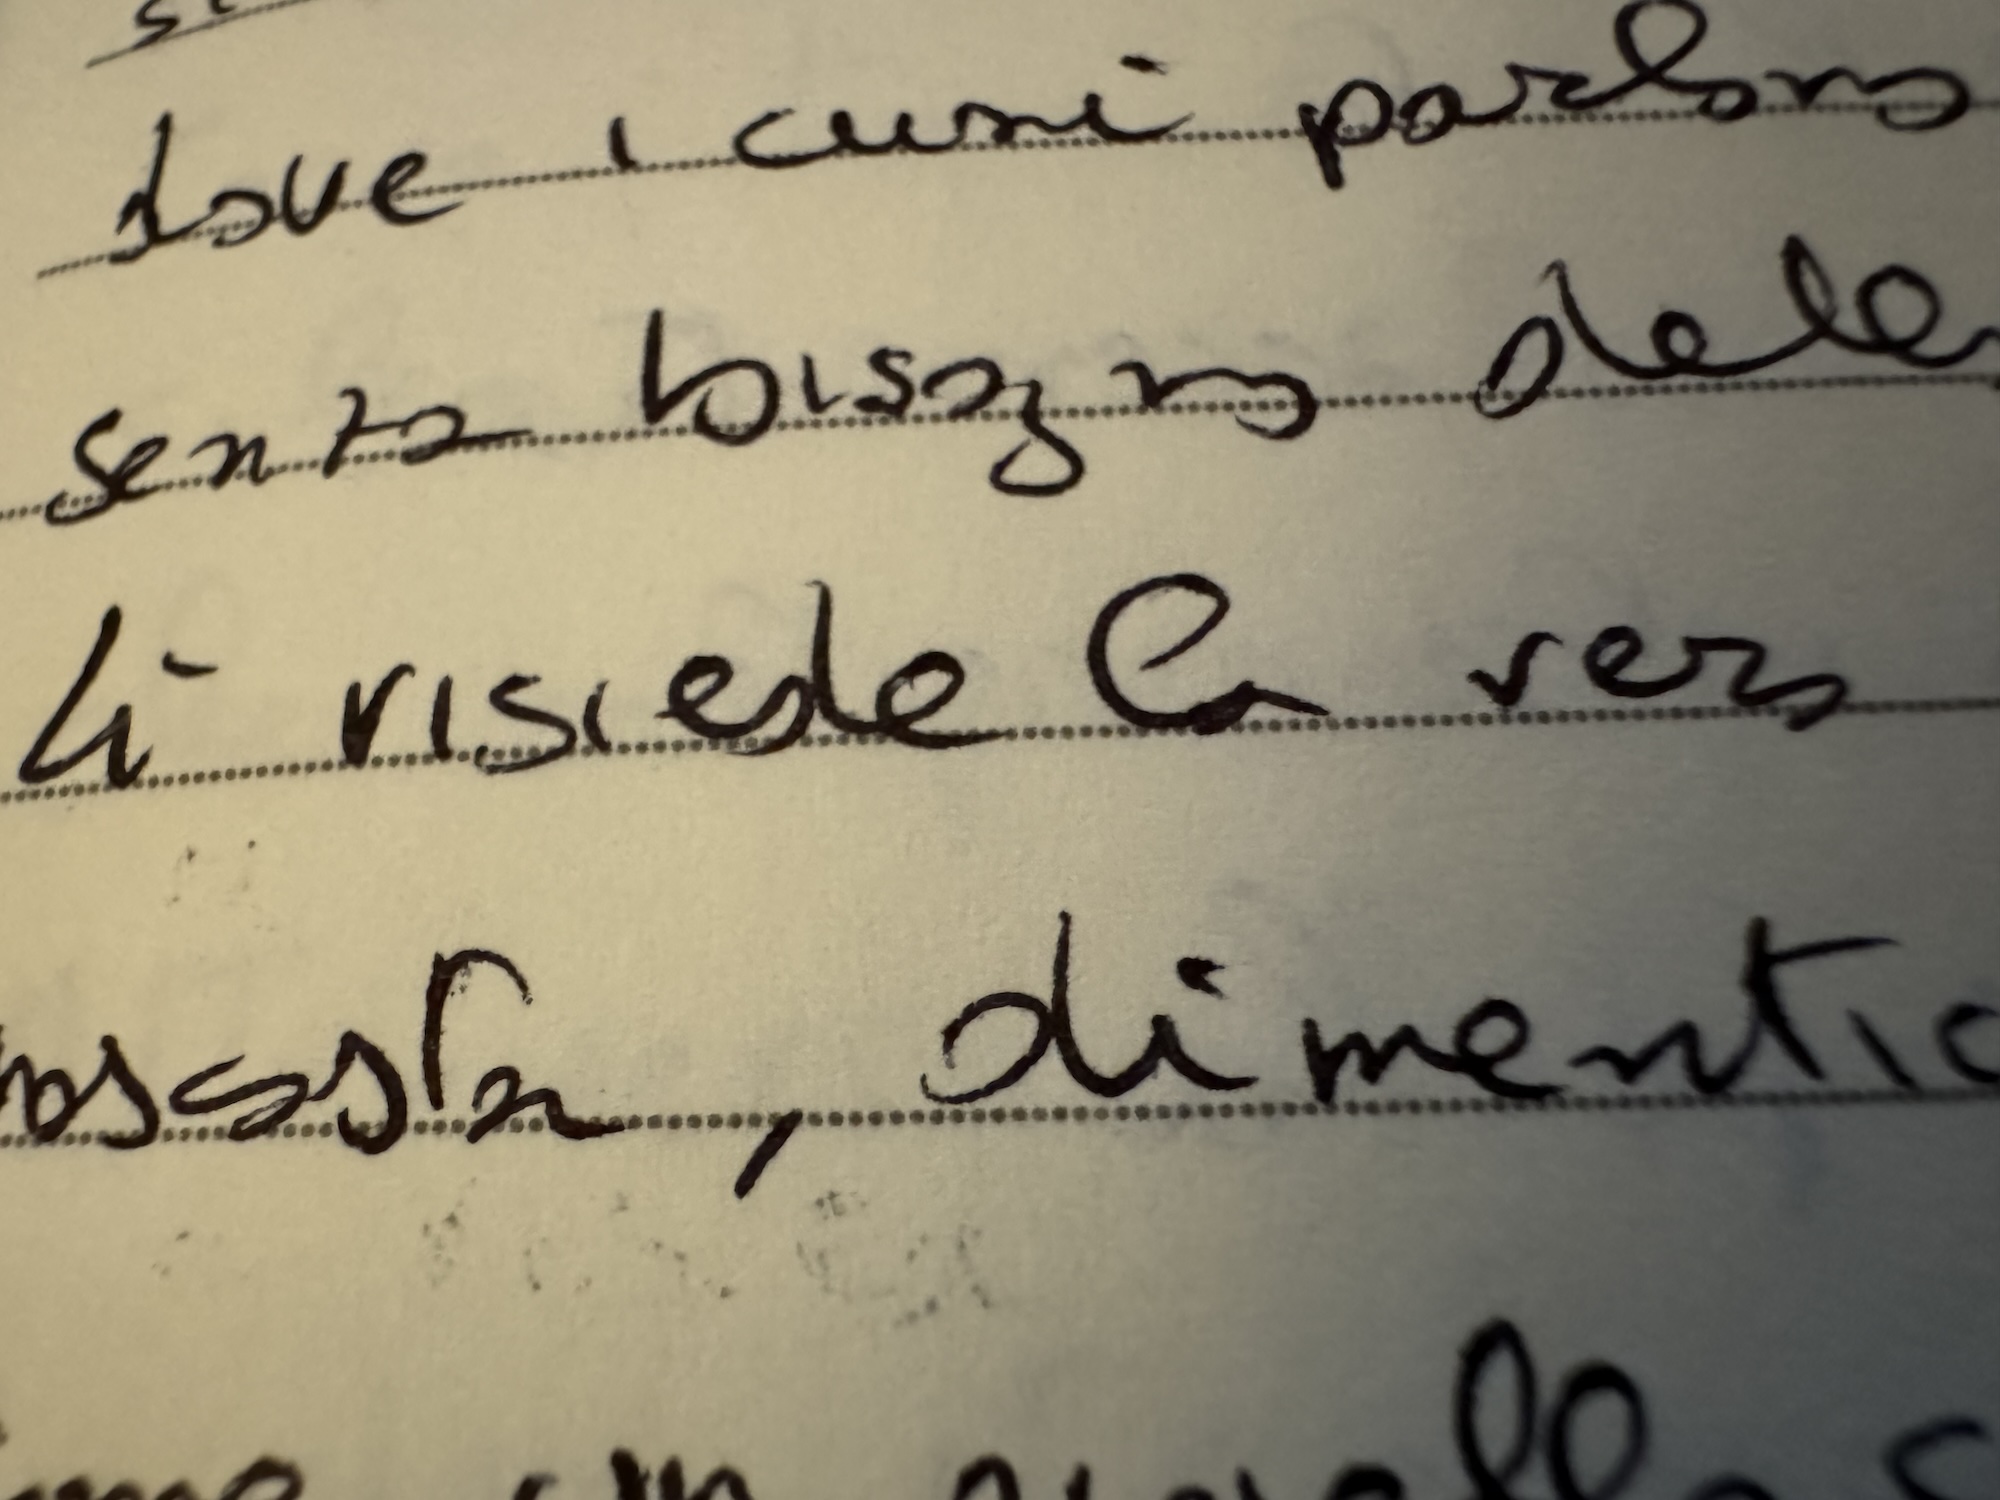 dove i cuori parlano
senza bisogno delle
lì risiede la vera
nascosta, dimentic
in quello s